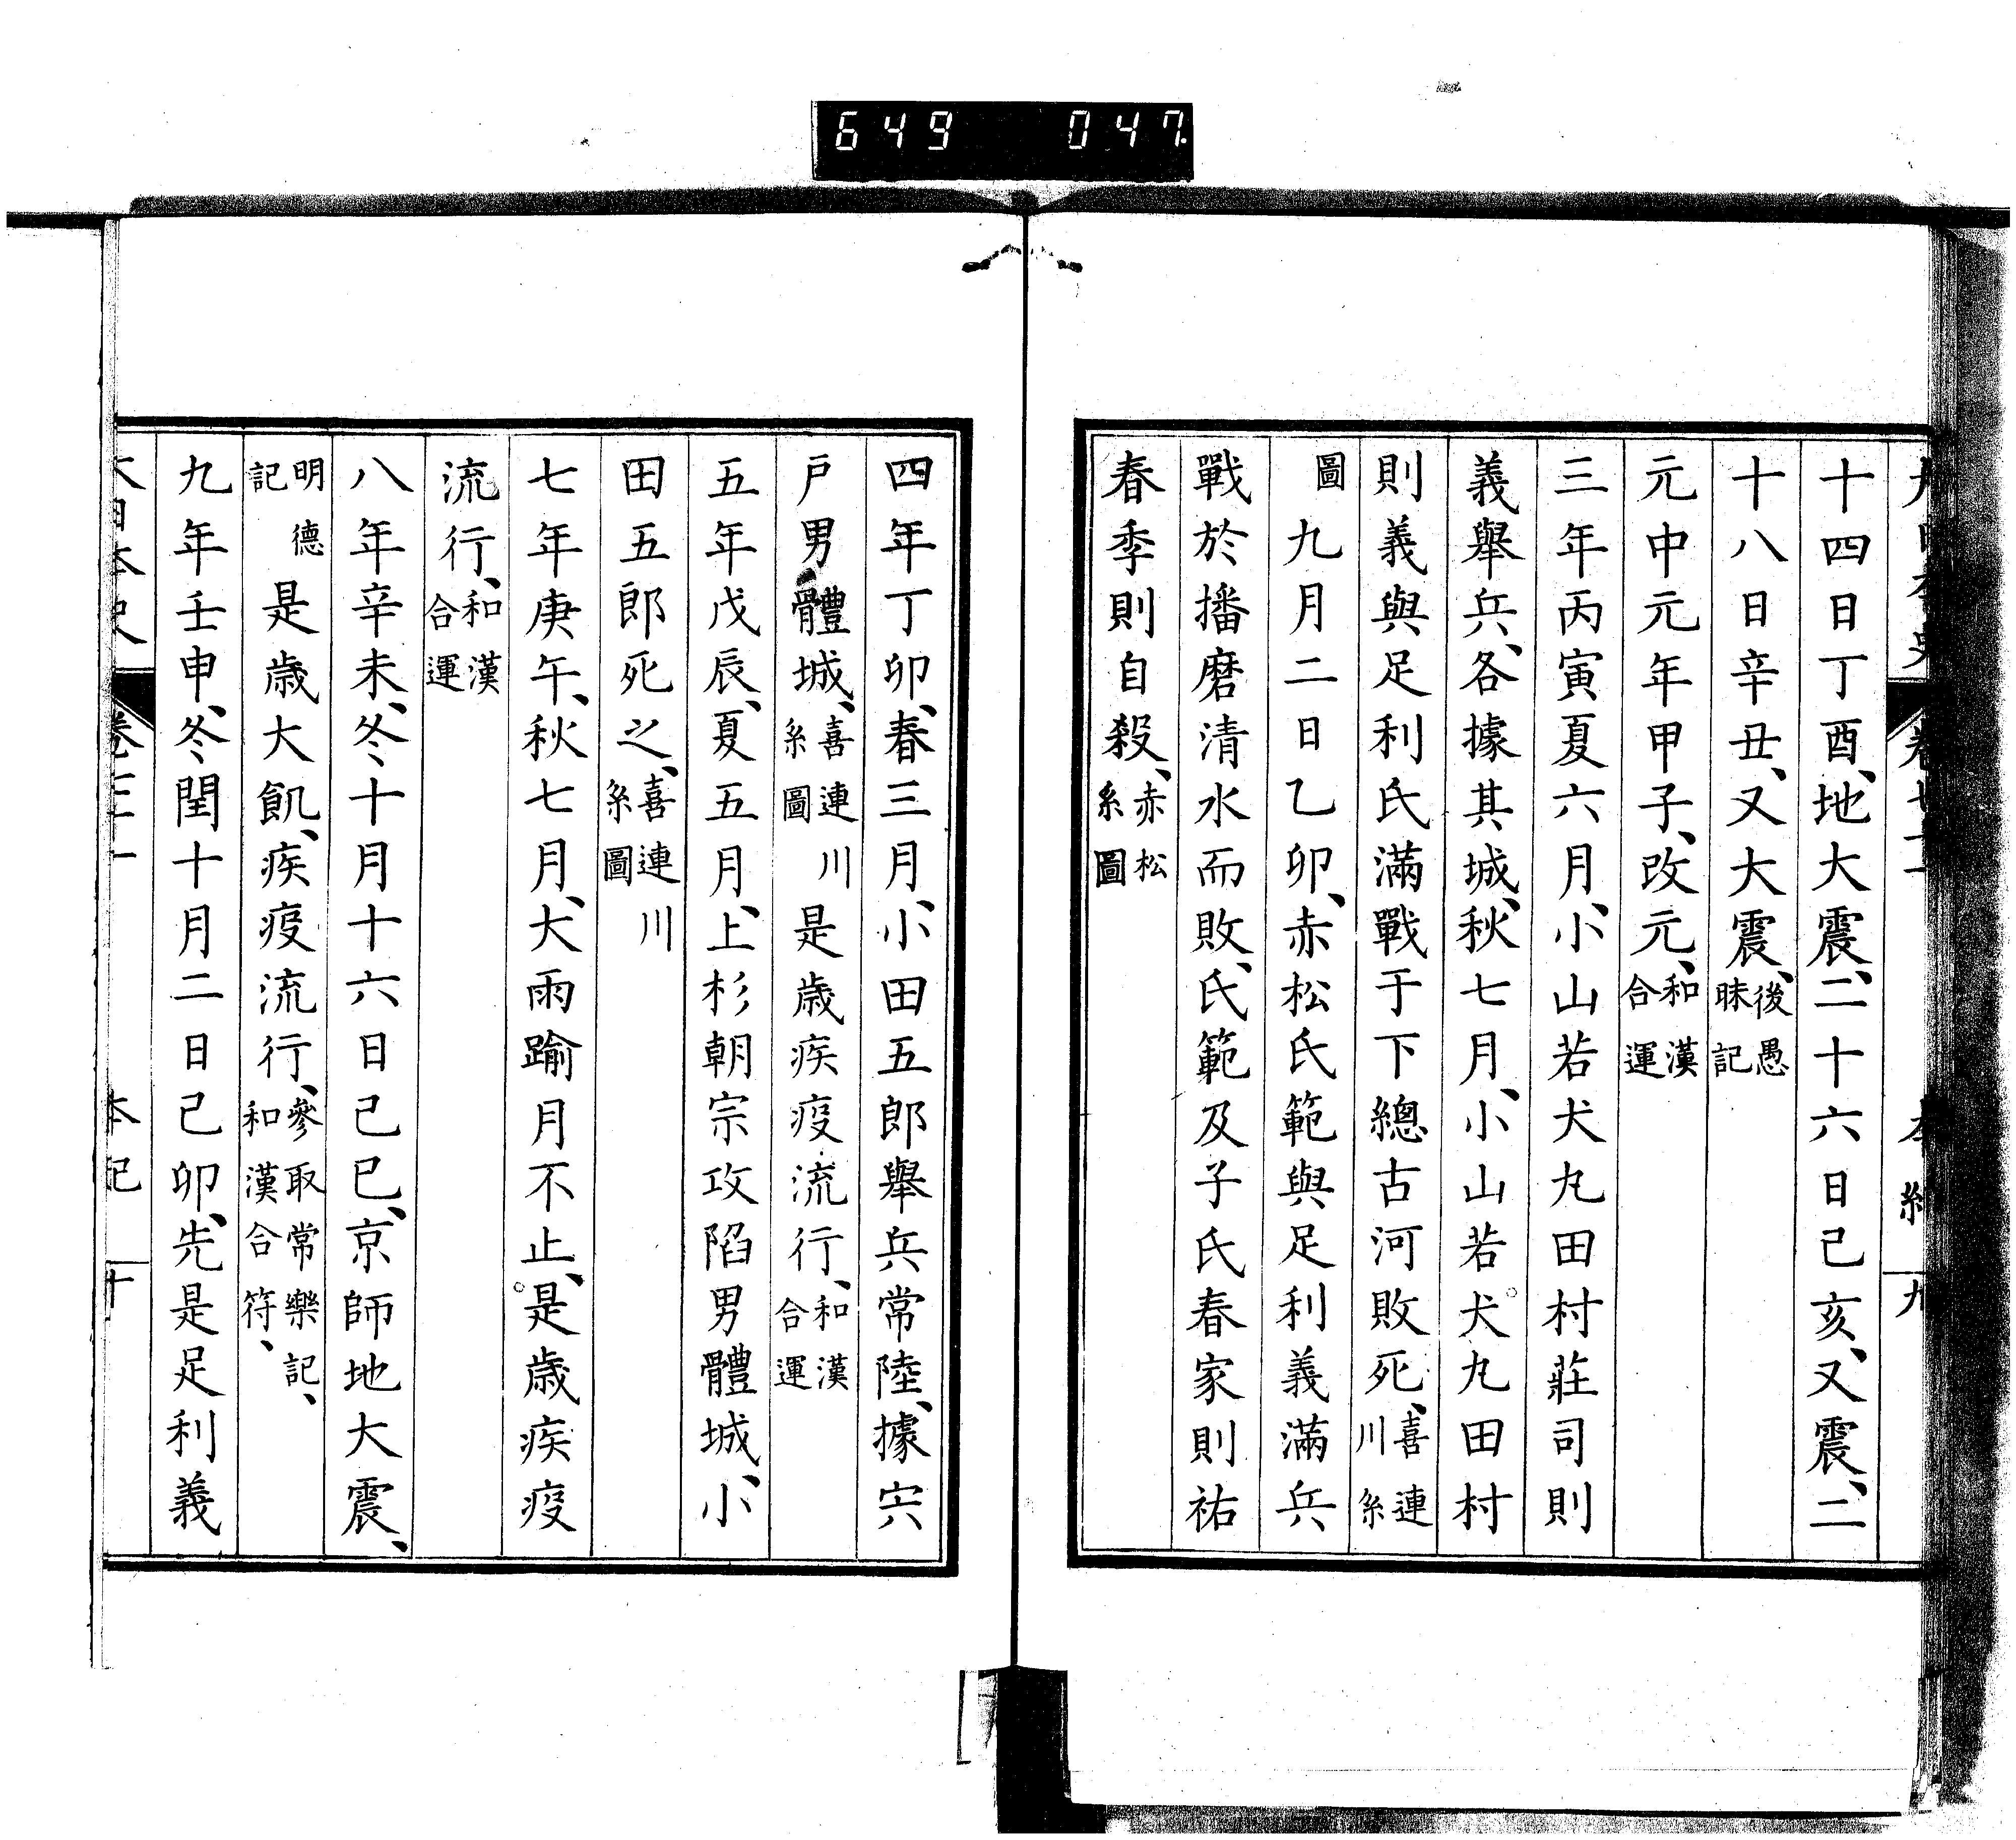 649 047
十四日丁酉、地大震、二十六日己亥、又震、二
十八日辛丑、又大震、後愚昧記
元中元年甲子、改元、和漢合運
三年丙寅夏六月、小山若犬丸田村莊司則
義舉兵、各據其城、秋七月、小山若犬丸田村
則義與足利氏滿戰于下總古河敗死、喜連川系
圖九月二日乙卯、赤松氏範與足利義滿兵
戰於播磨清水而敗、氏範及子氏春家則祐
春季則自殺、赤松系圖
四年丁卯、春三月、小田五郎舉兵常陸、據宍
戸男體城、喜連川系圖是歳疾疫流行、和漢合運
五年戊辰、夏五月、上杉朝宗攻陷男體城、小
田五郎死之、喜連川系圖
七年庚午、秋七月、大雨踰月不止、是歳疾疫
流行、和漢合運
八年辛未、冬十月十六日己巳、京師地大震、
明德記是歳大飢、疾疫流行、參取常樂記、和漢合符、
九年壬申、冬閏十月二日己卯、先是足利義
大日本史 本紀 十